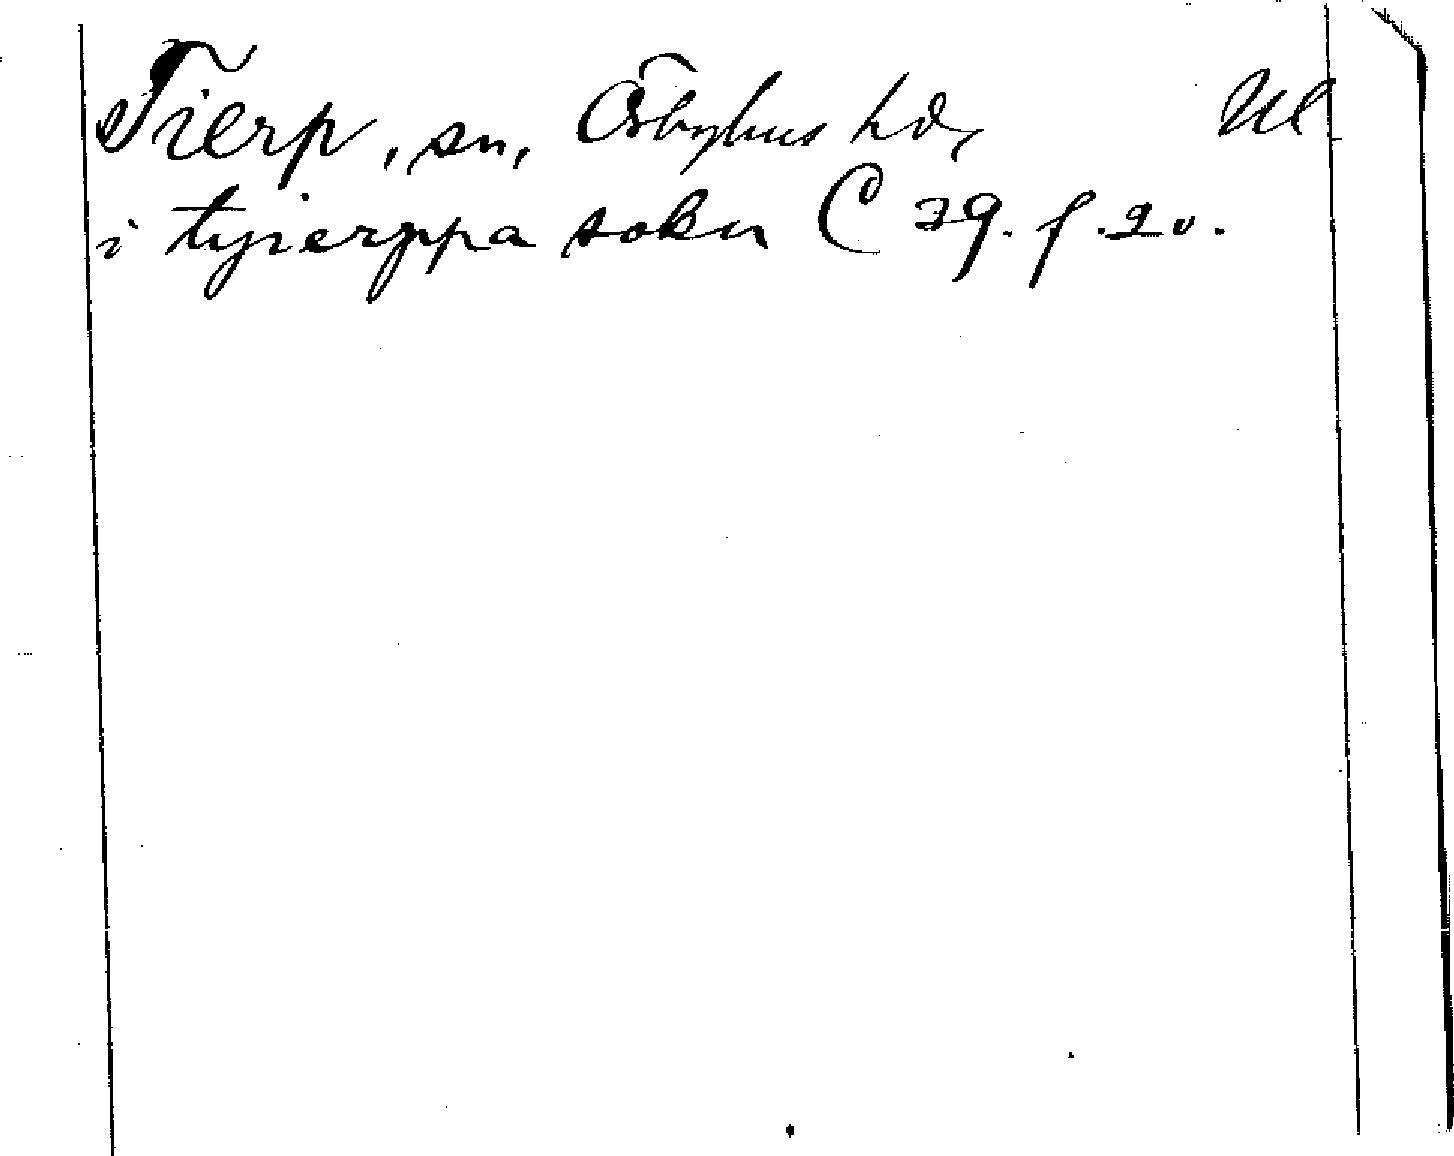 Tierp, sn, Örbyhus hd, Ul
i tyierppa sokn C 39. f. 20.